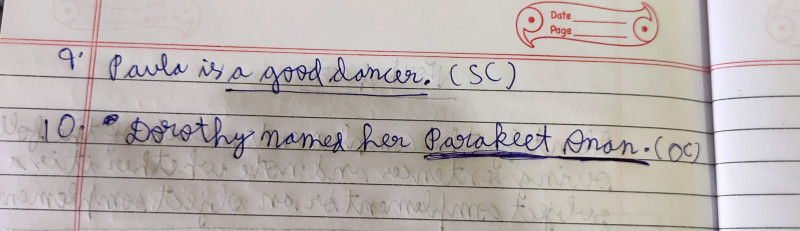 Date
Page
9. Paula is a good dancer. (SC)
10. Dorothy named her Parakeet Onan. (OC)